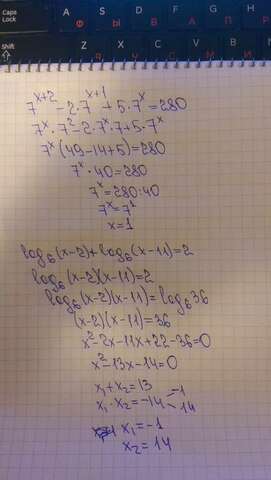 Caps
Lock
A
S
D
F
G
Ф
Ы
В
А
П
Shift
Z
X
C
V
Я
Ч
С
М
7^{x+2} - 2·7^{x+1} + 5·7^x = 280
7^x · 7^2 - 2·7^x·7 + 5·7^x
7^x (49 - 14 + 5) = 280
7^x · 40 = 280
7^x = 280:40
7^x = 7^1
x = 1
log_6 (x-2) + log_6 (x-11) = 2
log_6 (x-2)(x-11) = 2
log_6 (x-2)(x-11) = log_6 36
(x-2)(x-11) = 36
x^2 - 2x - 11x + 22 - 36 = 0
x^2 - 13x - 14 = 0
x_1 + x_2 = 13
x_1 · x_2 = -14
-1
14
x_1 = -1
x_2 = 14